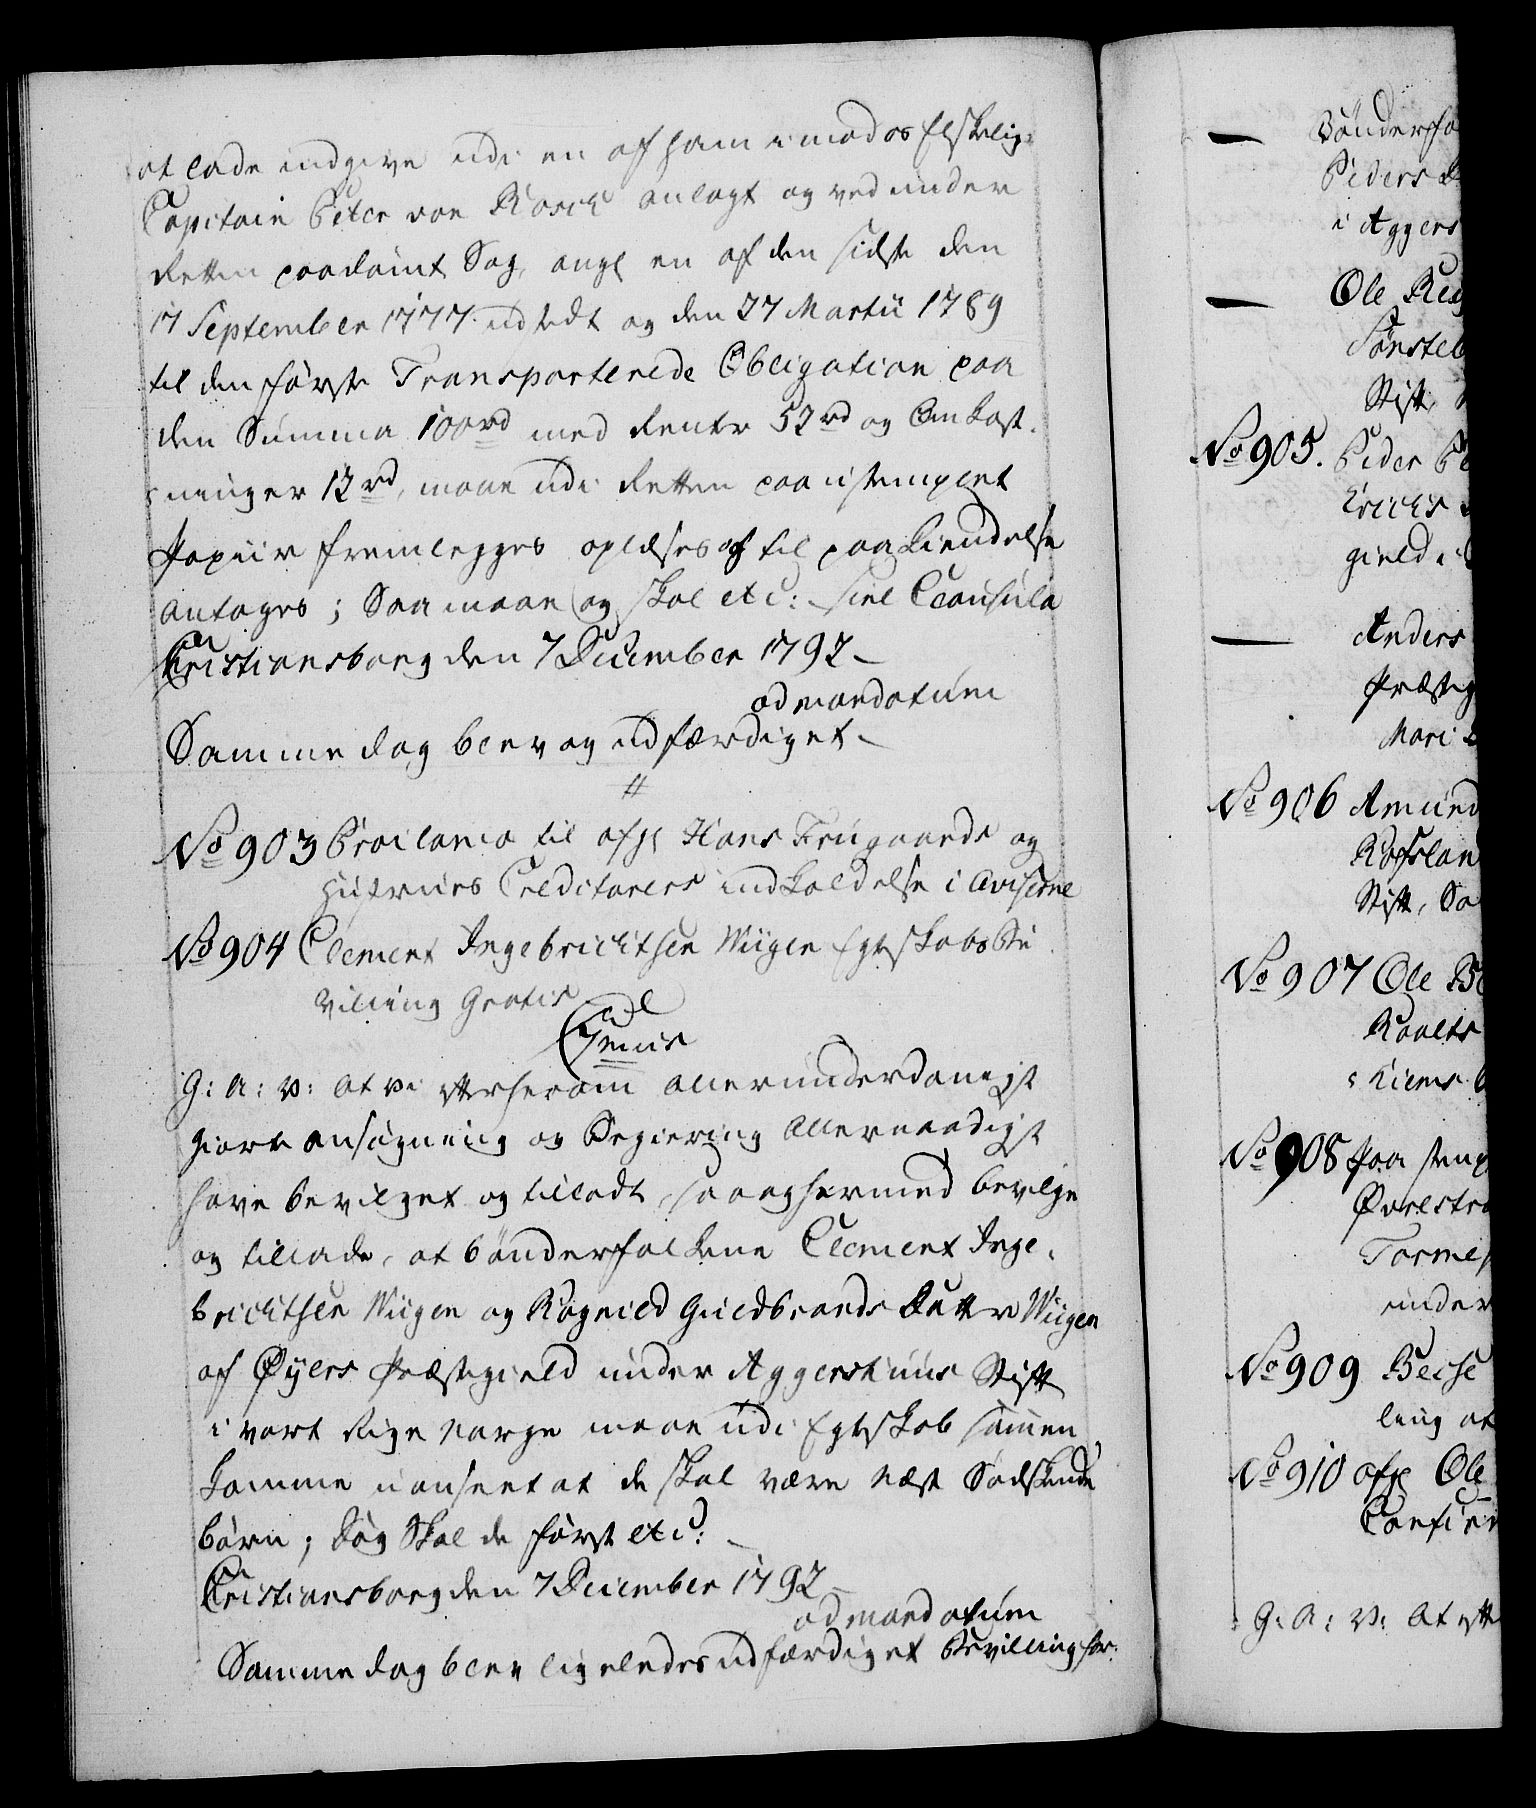 at lade indgive udi en af ham imod os Elskelig:
Capitain Peter von Kosch anlagt og ved under
Retten paadömt Sag, angl en af den sidste den
17 September 1777 udstedt og den 27 Martii 1789
til den förste Transporterede Obligation paa
den Summa 100rd med Rente 52rd og Omkost-
ninger 12rd, maae udi Retten paa ustemplet
Papiir fremlegges oplæses og til paakiendelse
antages; Saa maae og skal etc: sine Clausula
Christiansborg den 7 December 1792 -
ad mandatum
Samme dag blev og udfærdiget -
//
No 903 Proclama til afg: Hans Frugaards og
Hustrues Creditorers indkaldelse i Aviserne
No 904 Clement Ingebrichtsen Wiigen Egteskabs Be
villing Gratis
C7mus
G: A: V: At vi efter herom allerunderdanigst
giort ansögning og Begiering Allernaadigst
have bevilget og tilladt, saa og hermed bevilge
og tillade, at bönderfolkene Clement Inge-
brichtsen Wiigen og Ragnild Guldbrands Datter Wiigen
af Øyers Præstegield under Aggershuus Stift
i vort Rige Norge maae udi Egteskab sammen
komme uanseet at de skal være Næst Södskende
börn; dog Skal de först etc: -
Christiansborg den 7 December 1792 -
ad mandatum
Samme dag blev ligeledes udfærdiget Bevilling for:
— Bönderfo
Peders D
i Aggers
— Ole
Sönsteb
Stift,
No 905. Peder
Erichs
gield i
— Anders
Præsteg
Mari
No 906 Amund
Rofslan
Stift, Sa
No 907 Ole
Roalts
Kiems
No 908 Paa stemp
Øvrestra
Torme
under
No 909 Belse
ling at
No 910 afg: Ole
Confir
G: A: V: At eft